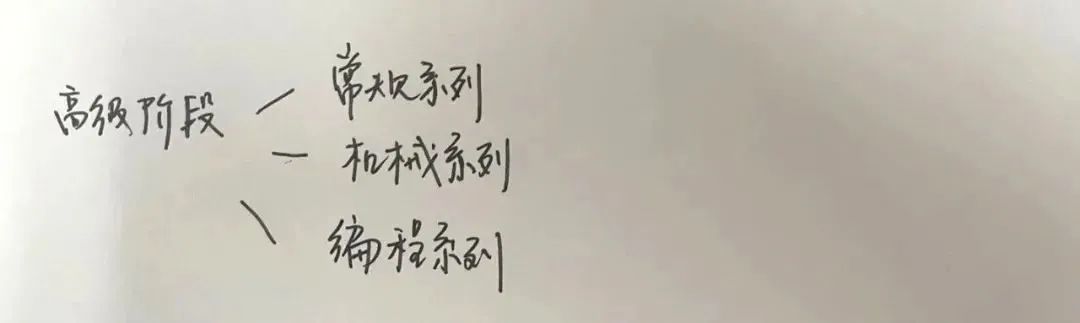 高级阶段
常规系列
机械系列
编程系列